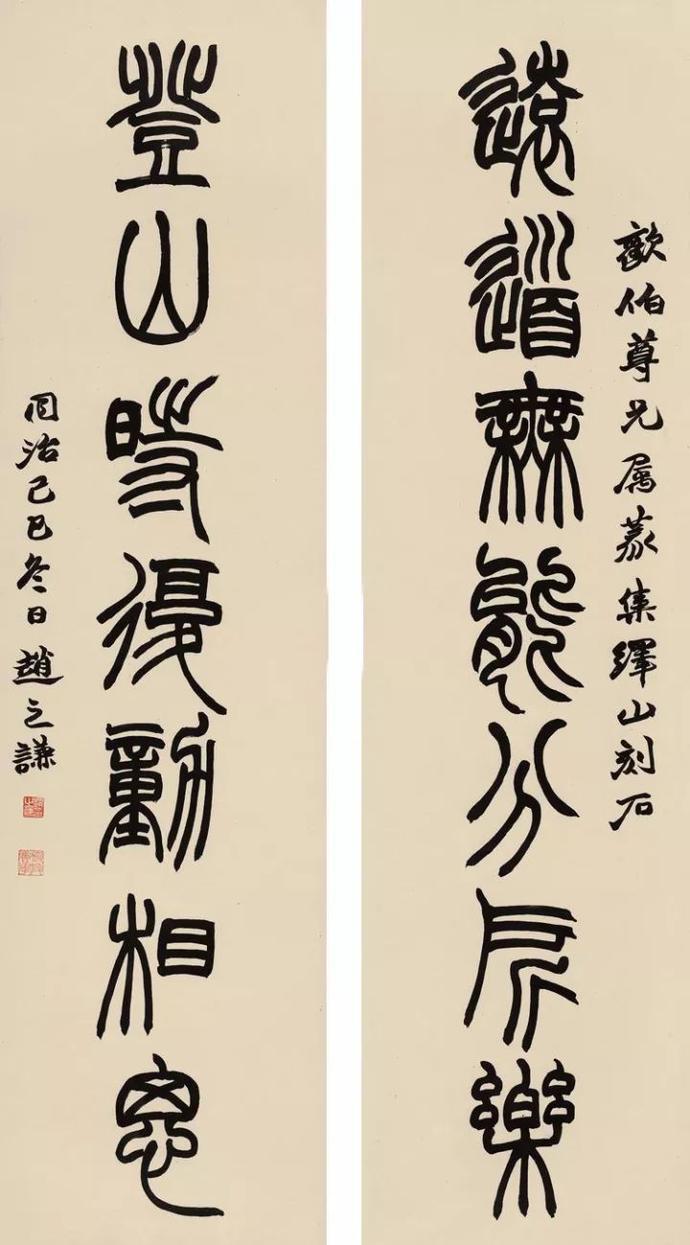 歗伯尊兄屬篆集繹山刻石
遠道無能分所樂
登山時復動相思
同治己巳冬日趙之謙